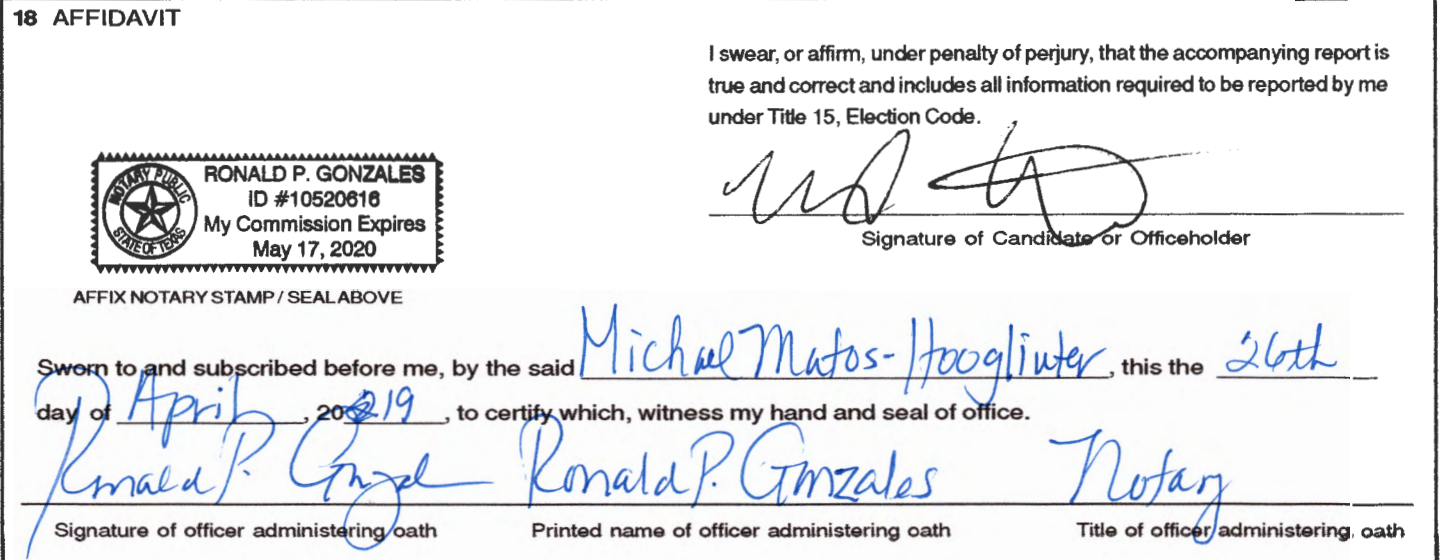 18 AFFIDAVIT
I swear, or affirm, under penalty of perjury, that the accompanying report is
true and correct and includes all information required to be reported by me
under Title 15, Election Code.
NOTARY PUBLIC
STATE OF TEXAS
RONALD P. GONZALES
ID #10520616
My Commission Expires
May 17, 2020
Signature of Candidate or Officeholder
AFFIX NOTARY STAMP / SEAL ABOVE
Sworn to and subscribed before me, by the said Michael Matos-Hooglinter, this the 26th
day of April, 2019, to certify which, witness my hand and seal of office.
Ronald P. Gonzales Notary
Signature of officer administering oath Printed name of officer administering oath Title of officer administering oath